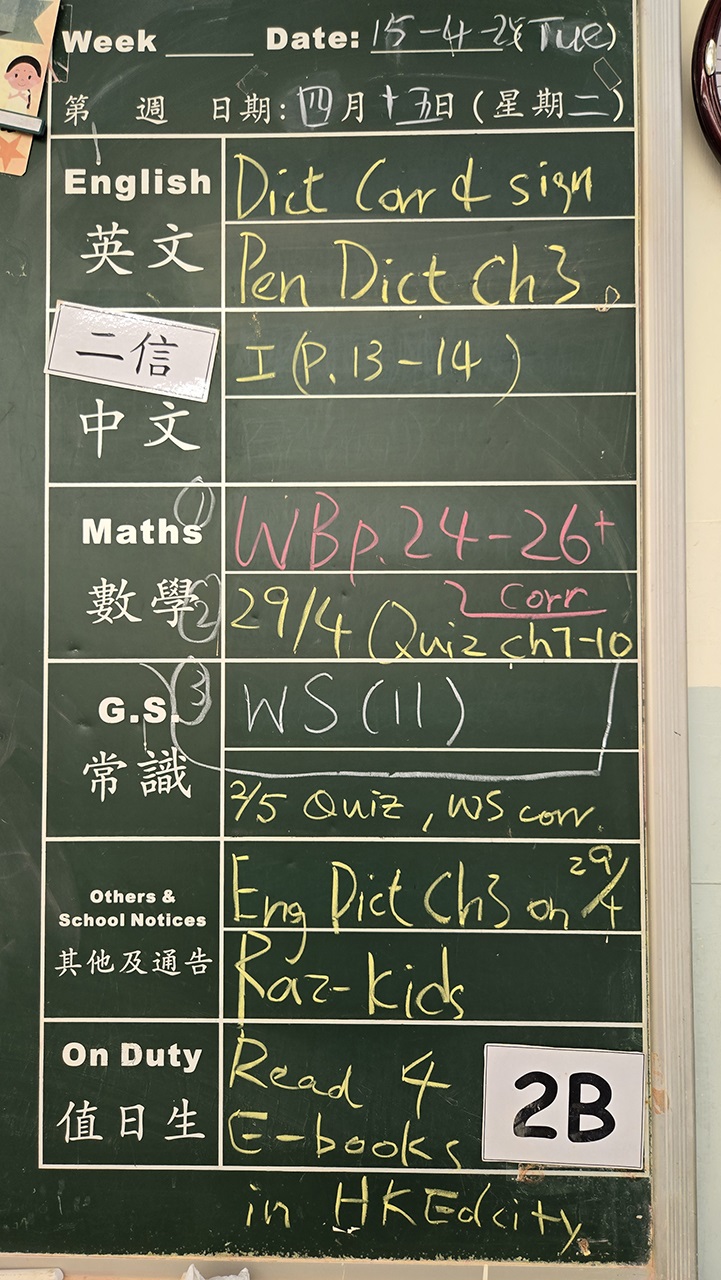 Week ____ Date: 15-4-25(Tue)
第 週 日期: 四月十五日 (星期二)
English
英文
Dict Corr & sign
Pen Dict Ch3.
二信
中文
I (P.13-14)
①
Maths
數學
②
WBp.24-26+
2 corr
29/4 Quiz ch7-10
③
G.S.
常識
WS(11)
2/5 Quiz, WS corr.
Others &
School Notices
其他及通告
Eng Dict Ch3 on 29/4
Raz-kids
On Duty
值日生
Read 4
E-books
in HKEdcity.
2B